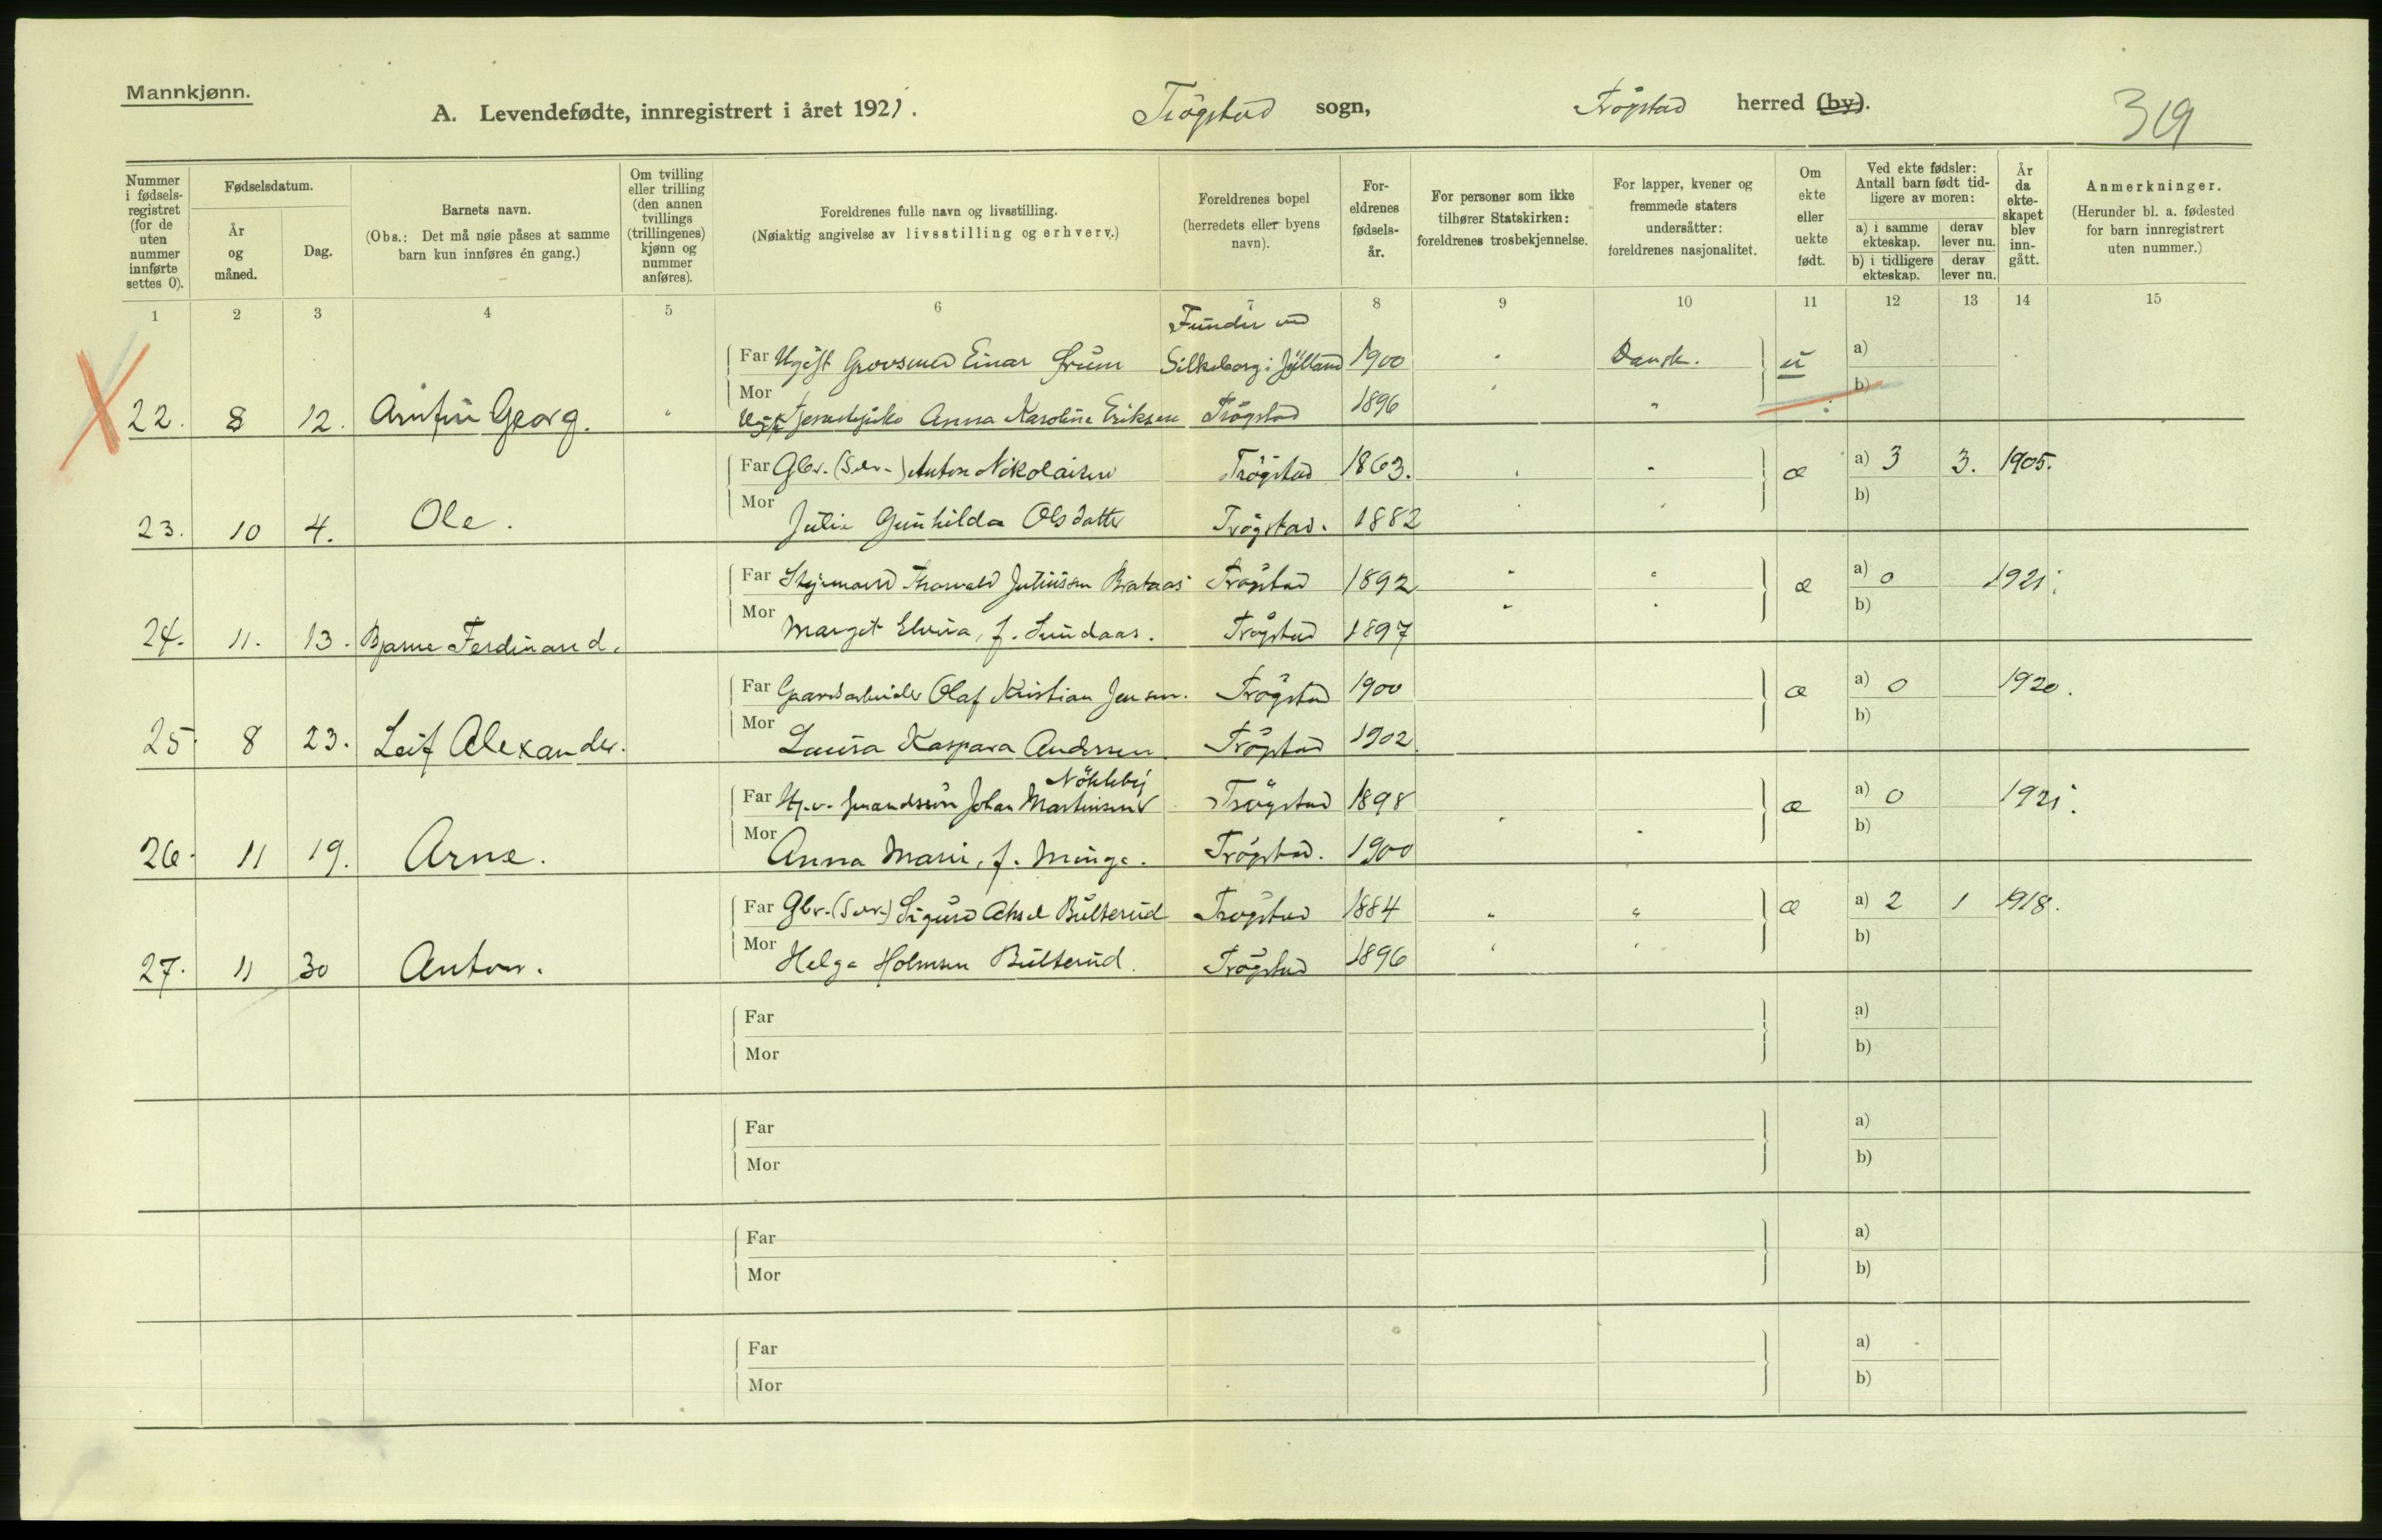 Mannkjønn.
A. Levendefødte, innregistrert i året 1921. Trögstad sogn, Trögstad herred (by).
319
Nummer i fødsels-registret (for de uten nummer innførte settes 0).
Fødselsdatum.
År og måned.
Dag.
Barnets navn.
(Obs.: Det må nøie påses at samme barn kun innføres én gang.)
Om tvilling eller trilling (den annen tvillings (trillingenes) kjønn og nummer anføres).
Foreldrenes fulle navn og livsstilling.
(Nøiaktig angivelse av livsstilling og erhverv.)
Foreldrenes bopel
(herredets eller byens navn).
For-eldrenes fødsels-år.
For personer som ikke tilhører Statskirken: foreldrenes trosbekjennelse.
For lapper, kvener og fremmede staters undersåtter: foreldrenes nasjonalitet.
Om ekte eller uekte født.
Ved ekte fødsler: Antall barn født tid-ligere av moren:
a) i samme ekteskap.
derav lever nu.
b) i tidligere ekteskap.
derav lever nu.
År da ekte-skapet blev inn-gått.
Anmerkninger.
(Herunder bl. a. fødested for barn innregistrert uten nummer.)
1 2 3 4 5 6 7 8 9 10 11 12 13 14 15
Funder ved
Far Ugift Einar Silkeborg i Jylland 1900 " Dansk. u a)
Mor b)
22. 8 12. Arnfin Georg. " Ugift Anna Karoline Eriksen Trögstad 1896 "
Far Gbr. (Selv-) Anton Nikolaisen Trögstad 1863. " " æ a) 3 3. 1905.
Mor b)
23. 10 4. Ole. Julie Gunhilda Olsdatter Trögstad. 1882
Far Thorvald Juliussen Brataas Trögstad 1892 " " æ a) 0 1921.
Mor b)
24. 11. 13. Bjarne Ferdinand. Margit Elvira, f. Trögstad 1897
Far Gaardsarbeider Olaf Kristian Jensen. Trögstad 1900 æ a) 0 1920.
Mor b)
25. 8 23. Leif Alexander. Lovisa Kaspara Andersen Trögstad 1902.
Nökleby
Far Johan Martinsen Trögstad 1898 æ a) 0 1921.
Mor b)
26. 11 19. Arne. Anna Marie, f. Minge. Trögstad. 1900
Far Gbr. (Selv-) Sigurd Aksel Bulterud Trögstad 1884 " " æ a) 2 1 1918.
Mor b)
27. 11 30 Anton. Helga Holmsen Bulterud. Trögstad 1896
Far a)
Mor b)
Far a)
Mor b)
Far a)
Mor b)
Far a)
Mor b)